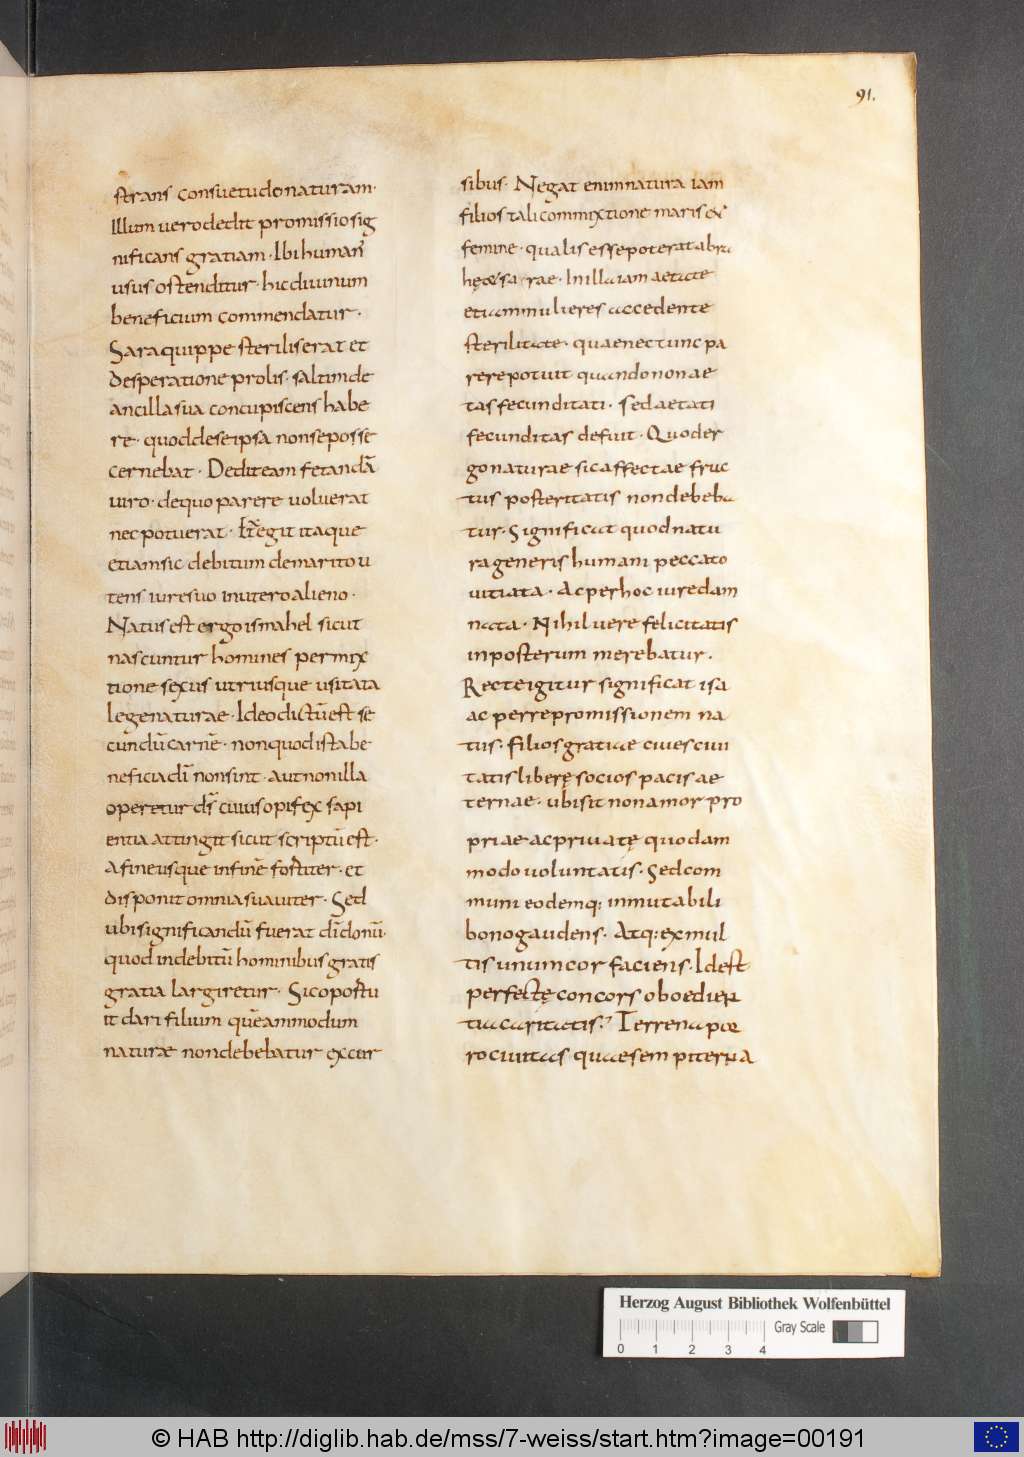 91.
strans consuetudo naturam·
Illum uero dedit promissio sig
nificans gratiam· Ibi human᾽
usus ostenditur· hic diuinum
beneficium commendatur·
Sara quippe sterilis erat et
desperatione prolis· saltim de
ancilla sua concupiscens habe
re· quod de se ipsa non se posse
cernebat· Dedit eam fetandā
uiro· de quo parere uoluerat
nec potuerat· exegit itaque
etiam sic debitum de marito u
tens iure suo in utero alieno·
Natus est ergo ismahel sicut
nascuntur homines permix
tione sexus utriusque usitata
lege naturae· Ideo dictū est se
cundū carnē· non quod ista be
neficia dī non sint· aut non illa
operetur ds̄ cuius opifex sapi
entia attingit sicut scriptū est·
A fine usque in finē fortiter· et
disponit omnia suauiter· Sed
ubi significandū fuerat dī donū·
quod indebitū hominibus gratis
gratia largiretur· Sic oportu
it dari filium quēammodum
naturæ non debebatur excur
sibus· Negat enim natura iam
filios tali commixtione maris &
femine· qualis esse poterat abra
hę & sarrae· In illa iam aetate
etiam mulieres accedente
sterilitate· quae nec tunc pa
rere potuit quando non ae
tas fecunditati· sed aetati
fecunditas defuit· Quod er
go naturae sic affectae fruc
tus posteritatis non debeba
tur· significat quod natu
ra generis humani peccato
uitiata· Ac per hoc iure dam
nata· Nihil uere felicitatis
in posterum merebatur·
Recte igitur significat isa
ac per repromissionem na
tus· filios gratiae ciues ciui
tatis liberę socios pacis ae
ternae· ubi sit non amor pro
priae ac priuatę quodam
modo uoluntatis· Sed com
muni eodemq; inmutabili
bono gaudens· Atq; ex mul
tis unum cor faciens· Id est
perfectę concors oboedien
tia caritatis· Terrena por
ro ciuitas quae sempiterna
Herzog August Bibliothek Wolfenbüttel
Gray Scale
0 1 2 3 4
© HAB http://diglib.hab.de/mss/7-weiss/start.htm?image=00191